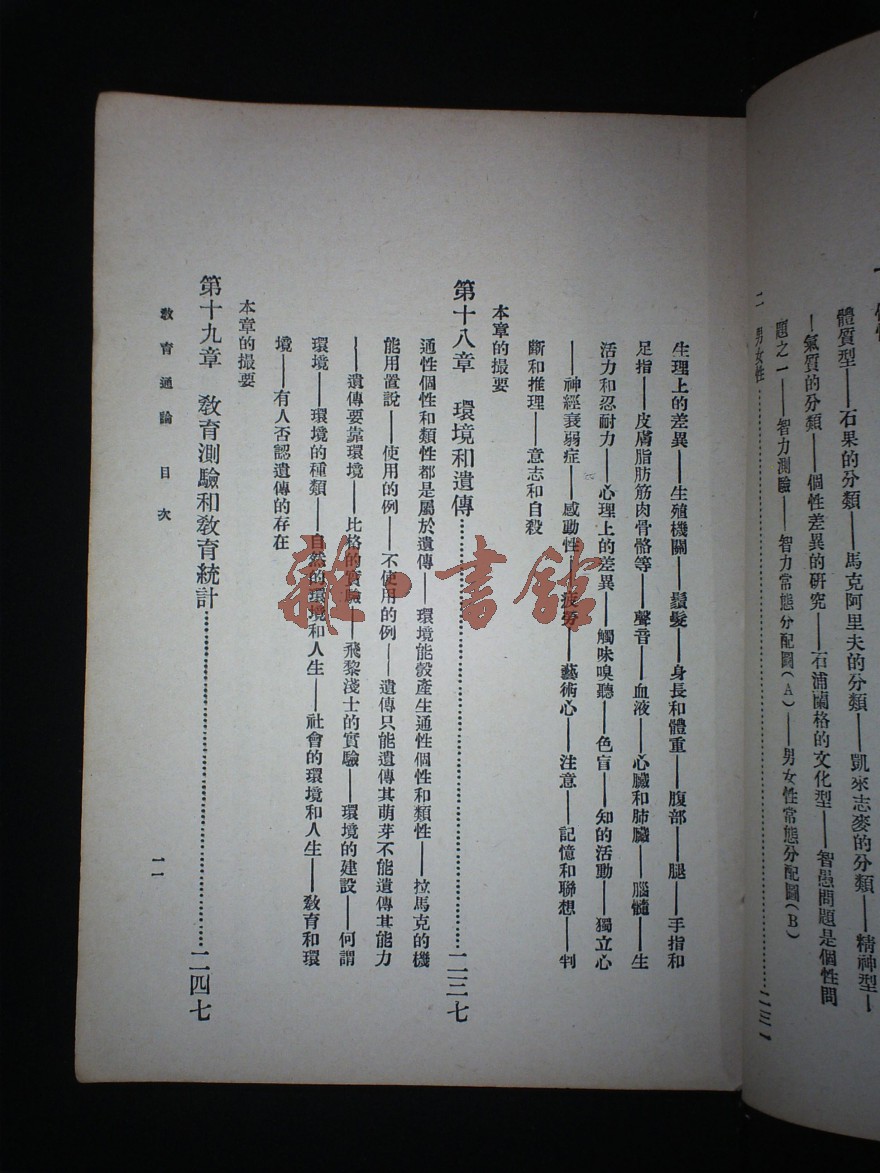 體質型——石果的分類——馬克阿里夫的分類——凱來志麥的分類——精神型—
—氣質的分類——個性差異的研究——石浦蘭格的文化型——智愚問題是個性問
題之一——智力測驗——智力常態分配圖(A)——男女性常態分配圖(B)
二 男女性……二三一
生理上的差異——生殖機關——鬚髮——身長和體重——腹部——腿——手指和
足指——皮膚脂肪筋肉骨骼等——聲音——血液——心臟和肺臟——腦髓——生
活力和忍耐力——心理上的差異——觸味嗅聽——色盲——知的活動——獨立心
——神經衰弱症——感動性——疲勞——藝術心——注意——記憶和聯想——判
斷和推理——意志和自殺
本章的撮要
第十八章 環境和遺傳……二三七
通性個性和類性都是屬於遺傳——環境能彀產生通性個性和類性——拉馬克的機
能用置說——使用的例——不使用的例——遺傳只能遺傳其萌芽不能遺傳其能力
——遺傳要靠環境——比格的實驗——飛黎淺士的實驗——環境的建設——何謂
環境——環境的種類——自然的環境和人生——社會的環境和人生——敎育和環
境——有人否認遺傳的存在
本章的撮要
第十九章 敎育測驗和敎育統計……二四七
敎育通論 目次
一一
雜·書館